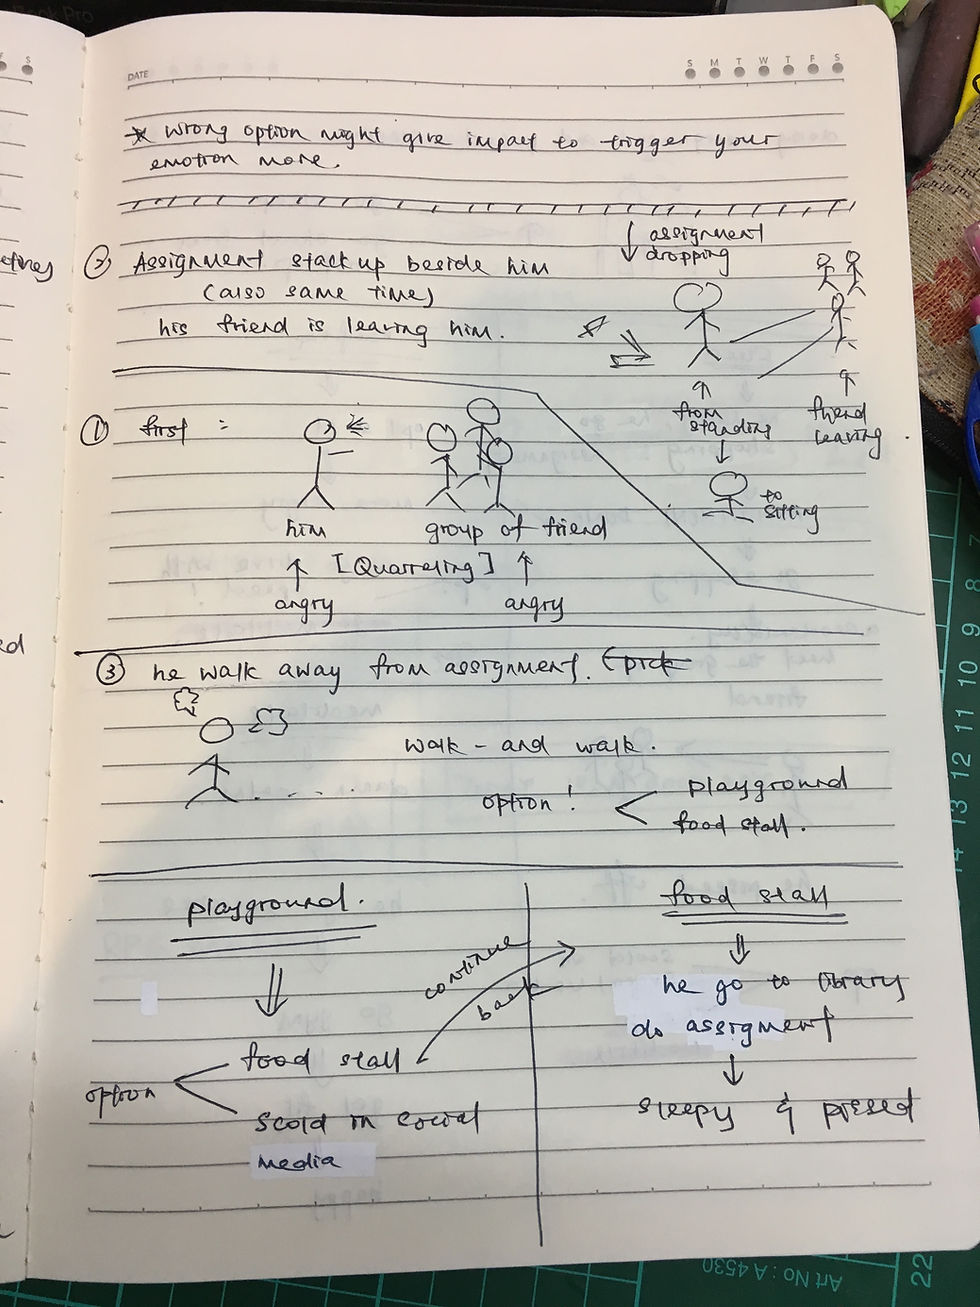 DATE
S M T W T F S
* wrong option might give impact to trigger your
emotion more.
② Assignment stack up beside him
(also same time)
his friend is leaving him.
↓ assignment
dropping
↑
from
standing
↓
to
sitting
↑
friend
leaving
① first :
him
group of friend
[Quarreling]
↑
angry
↑
angry
③ he walk away from assignment. (pick
walk - and walk.
option !
playground
food stall.
playground.
option
food stall
scold in social
media
continue
back
food stall
he go to library
do assigment
↓
sleepy &
Art No : A 4530
22
14 13 12 11 10 9 8 7